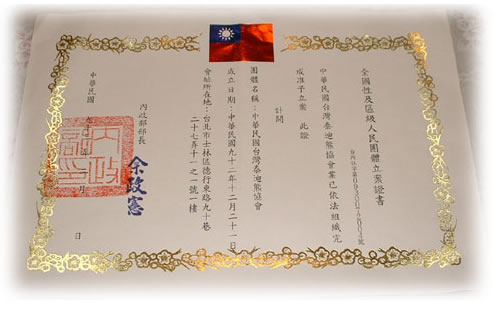 全國性及區級人民團體立案證書
中華民國台灣泰迪熊協會業已依法組織完
成准予立案 此證
計開
團體名稱：中華民國台灣泰迪熊協會
成立日期：中華民國九十二年十二月二十一日
會址所在地：台北市士林區德行東路九十巷
二十七弄十一之一號一樓
內政部部長
余政憲
中華民國
月
日